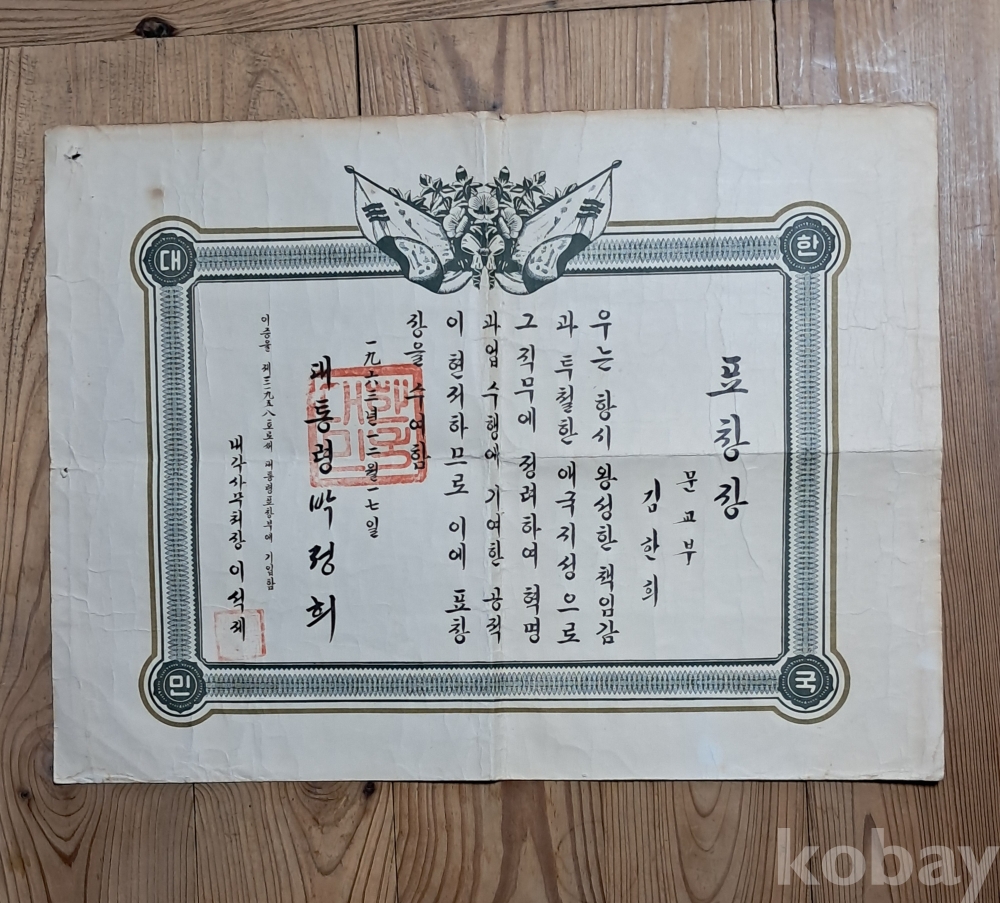 한
대
국
민
표창장
문교부
김한희
우는 항시 왕성한 책임감
과 투철한 애국지성으로
그 직무에 정려하여 혁명
과업 수행에 기여한 공적
이 현저하므로 이에 표창
장을 수여함
一九六三년一二월一七일
대통령 박정희
대한민국
이증을 제三二九五八호로써 대통령표창부에 기입함
내각사무처장 이석제
kobay